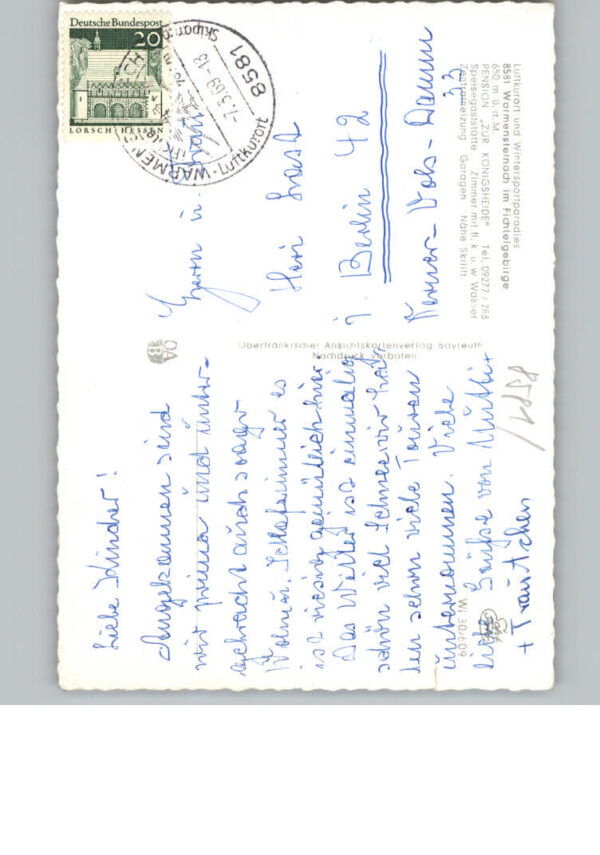 Deutsche Bundespost
20
LORSCH/HESSEN
8581 WARMEN
-7.3.69-13
Luftkurort
Luftkurort und Wintersportparadies
8581 Warmensteinach im Fichtelgebirge
650 m ü. d. M.
PENSION „ZUR KÖNIGSHEIDE“ Tel. 09277 / 285
Speisegaststätte Zimmer mit fl. k. u. w. Wasser
Zentralheizung Garagen Nähe Skilift
Oberfränkischer Ansichtskartenverlag Bayreuth
Nachdruck verboten
OAB
Wi 30/609
Liebe Kinder!
Angekommen sind
wir prima und unter-
gebracht auch sogar
Wohnzi. Schlafzimmer es
ist riesig gemütlich hier
Das Wetter ist einmalig
schön viel Schnee wir hat-
ten schon viele Touren
unternommen. Viele
liebe Grüße von Mutti
+ Trautchen
Herrn u. Frau
1 Berlin 42
33
8581